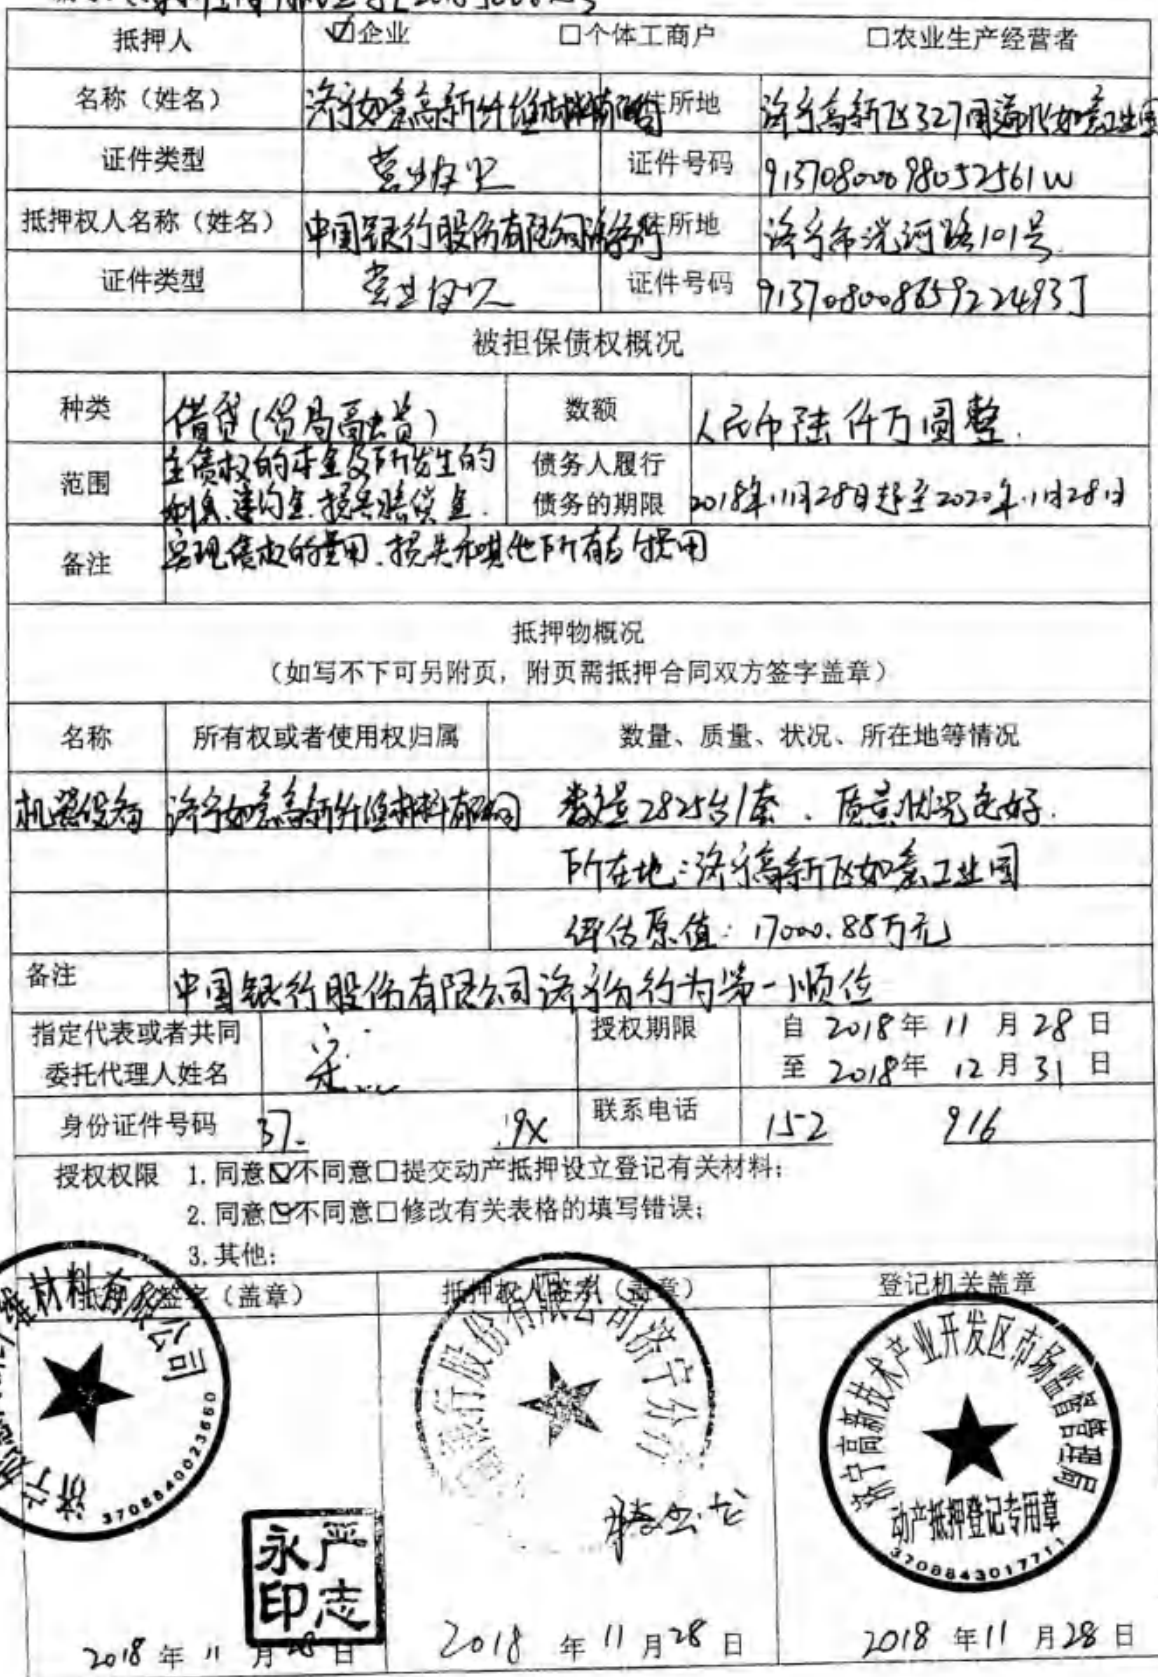 抵押人 ☑企业 □个体工商户 □农业生产经营者
名称（姓名） 济宁如意高新纤维材料有限公司 住所地 济宁高新区327国道北如意工业园
证件类型 营业执照 证件号码 91370800098052561W
抵押权人名称（姓名） 中国银行股份有限公司济宁分行 住所地 济宁市洸河路101号
证件类型 营业执照 证件号码 91370800865922493J
被担保债权概况
种类 借贷(贸易融资) 数额 人民币陆仟万圆整.
范围 主债权的本金及所发生的
利息.违约金.损害赔偿金.
债务人履行
债务的期限 2018年11月28日起至2020年11月28日
备注 实现债权的费用.损失和其他所有应付费用
抵押物概况
（如写不下可另附页，附页需抵押合同双方签字盖章）
名称 所有权或者使用权归属 数量、质量、状况、所在地等情况
机器设备 济宁如意高新纤维材料有限公司 数量2825台/套．质量状况良好.
所在地:济宁高新区如意工业园
评估原值: 17000.85万元
备注 中国银行股份有限公司济宁分行为第一顺位
指定代表或者共同
委托代理人姓名
授权期限 自 2018年 11 月 28 日
至 2018年 12 月 31 日
身份证件号码 37 9X 联系电话 152 916
授权权限 1.同意☑不同意□提交动产抵押设立登记有关材料;
2.同意☑不同意□修改有关表格的填写错误;
3.其他:
抵押人签字（盖章） 抵押权人签字（盖章） 登记机关盖章
维材料有限公司
3708840023660
严志永印
银行股份有限公司济宁分行
济宁高新技术产业开发区市场监督管理局
动产抵押登记专用章
3708843017711
2018 年 11 月 28 日 2018 年 11 月 28 日 2018 年 11 月 28 日